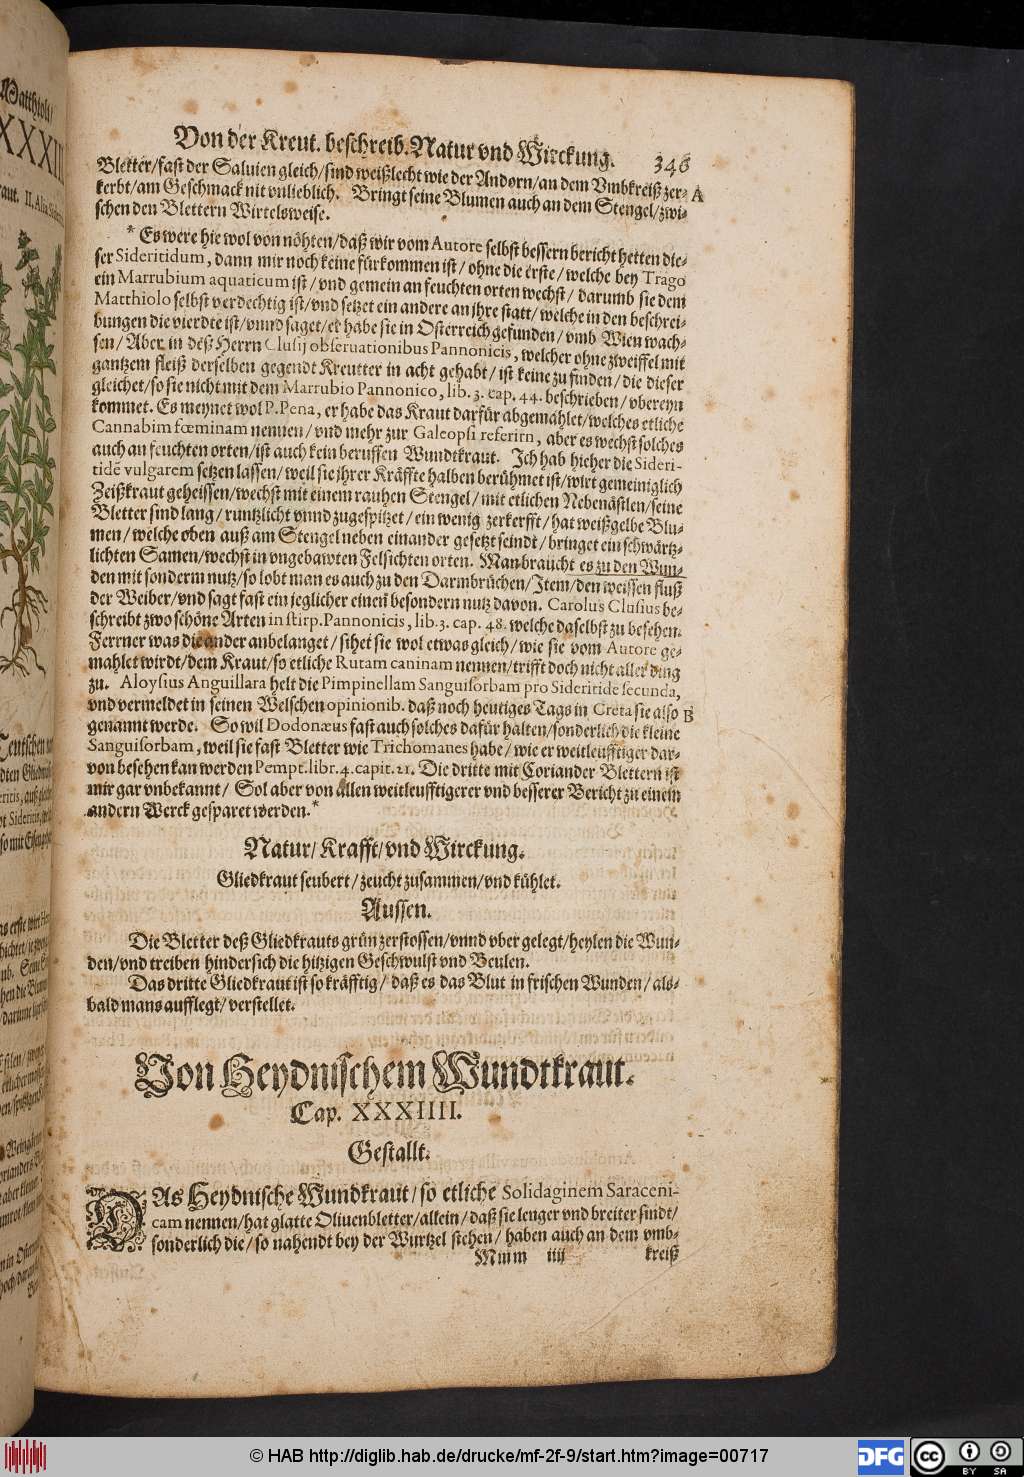 Von der Kreut. beschreib. Natur vnd Wirckung. 346
Bletter/fast der Saluien gleich/sind weißlecht wie der Andorn/an dem Vmbkreiß zer- A
kerbt/am Geschmack nit vnlieblich. Bringt seine Blumen auch an dem Stengel/zwi-
schen den Blettern Wirtelsweise.
* Es were hie wol von nöhten/daß wir vom Autore selbst bessern bericht hetten die-
ser Sideritidum, dann mir noch keine fürkommen ist/ ohne die erste/welche bey Trago
ein Marrubium aquaticum ist/ vnd gemein an feuchten orten wechst/ darumb sie dem
Matthiolo selbst verdechtig ist/vnd setzet ein andere an ihre statt/ welche in den beschrei-
bungen die vierdte ist/vnnd saget/er habe sie in Osterreich gefunden/ vmb Wien wach-
sen/ Aber in deß Herrn Clusij obseruationibus Pannonicis, welcher ohne zweiffel mit
gantzem fleiß derselben gegendt Kreutter in acht gehabt/ ist keine zu finden/ die dieser
gleichet/so sie nicht mit dem Marrubio Pannonico, lib. 3. cap. 44. beschrieben/ vbereyn
kommet. Es meynet wol P. Pena, er habe das Kraut darfür abgemahlet/welches etliche
Cannabim fœminam nennen/ vnd mehr zur Galeopsi referirn, aber es wechst solches
auch an feuchten orten/ist auch kein beruffen Wundtkraut. Ich hab hieher die Sideri-
tidē vulgarem setzen lassen/ weil sie jhrer Kräffte halben berühmet ist/wirt gemeiniglich
Zeißkraut geheissen/wechst mit einem rauhen Stengel/ mit etlichen Nebenästlen/seine
Bletter sind lang/ runtzlicht vnnd zugespitzet/ ein wenig zerkerfft/ hat weißgelbe Blu-
men/ welche oben auß am Stengel neben einander gesetzt seindt/ bringet ein schwärtz-
lichten Samen/wechst in vngebawten Felsichten orten. Man braucht es zu den Wun-
den mit sonderm nutz/ so lobt man es auch zu den Darmbrüchen/ Item/den weissen fluß
der Weiber/vnd sagt fast ein jeglicher einen besondern nutz davon. Carolus Clusius be-
schreibt zwo schöne Arten in stirp. Pannonicis, lib. 3. cap. 48. welche daselbst zu besehen.
Ferrner was die ander anbelanget/ sihet sie wol etwas gleich/ wie sie vom Autore ge-
mahlet wirdt/dem Kraut/so etliche Rutam caninam nennen/trifft doch nicht aller ding
zu. Aloysius Anguillara helt die Pimpinellam Sanguisorbam pro Sideritide secunda,
vnd vermeldet in seinen Welschen opinionib. daß noch heutiges Tags in Creta sie also B
genannt werde. So wil Dodonæus fast auch solches dafür halten/sonderlich die kleine
Sanguisorbam, weil sie fast Bletter wie Trichomanes habe/ wie er weitleufftiger dar-
von besehen kan werden Pempt. libr. 4. capit. 21. Die dritte mit Coriander Blettern ist
mir gar vnbekannt/ Sol aber von allen weitleufftigerer vnd besserer Bericht zu einem
andern Werck gesparet werden.*
Natur/ Krafft/ vnd Wirckung.
Gliedkraut seubert/ zeucht zusammen/vnd kühlet.
Aussen.
Die Bletter deß Gliedkrauts grün zerstossen/vnnd vber gelegt/heylen die Wun-
den/vnd treiben hindersich die hitzigen Geschwulst vnd Beulen.
Das dritte Gliedkraut ist so kräfftig/ daß es das Blut in frischen Wunden/ als-
bald mans aufflegt/ verstellet.
Von Heydnischem Wundtkraut.
Cap. XXXIIII.
Gestallt.
DAs Heydnische Wundkraut/ so etliche Solidaginem Saraceni-
cam nennen/hat glatte Oliuenbletter/allein/ daß sie lenger vnd breiter sindt/
sonderlich die/ so nahendt bey der Wurtzel stehen/ haben auch an dem vmb-
Mmm iiij kreiß
© HAB http://diglib.hab.de/drucke/mf-2f-9/start.htm?image=00717
DFG
cc BY SA